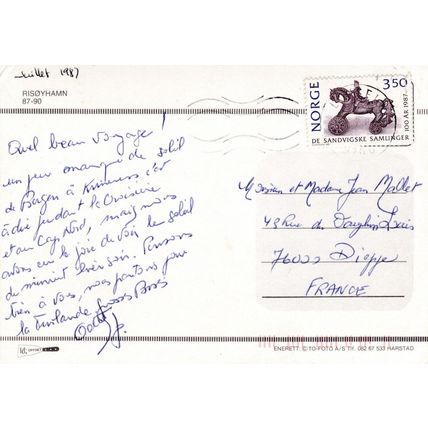 Juillet 1987
RISØYHAMN
87-90
NORGE 350
DE SANDVIGSKE SAMLINGER 100 ÅR 1987
Quel beau voyage!
un peu manqué de soleil
de Bergen à Kirkenes c'est
à dire pendant la Croisière
et au Cap Nord, mais nous
avons eu la joie de voir le soleil
de minuit hier soir. Pensons
bien à vous, nous partons pour
la Finlande, gros Bises
Monsieur et Madame Jean Mallet
49 Rue du
76000 Dieppe
FRANCE
ENERETT: CITO-FOTO A/S Tlf. 082 67 533 HARSTAD